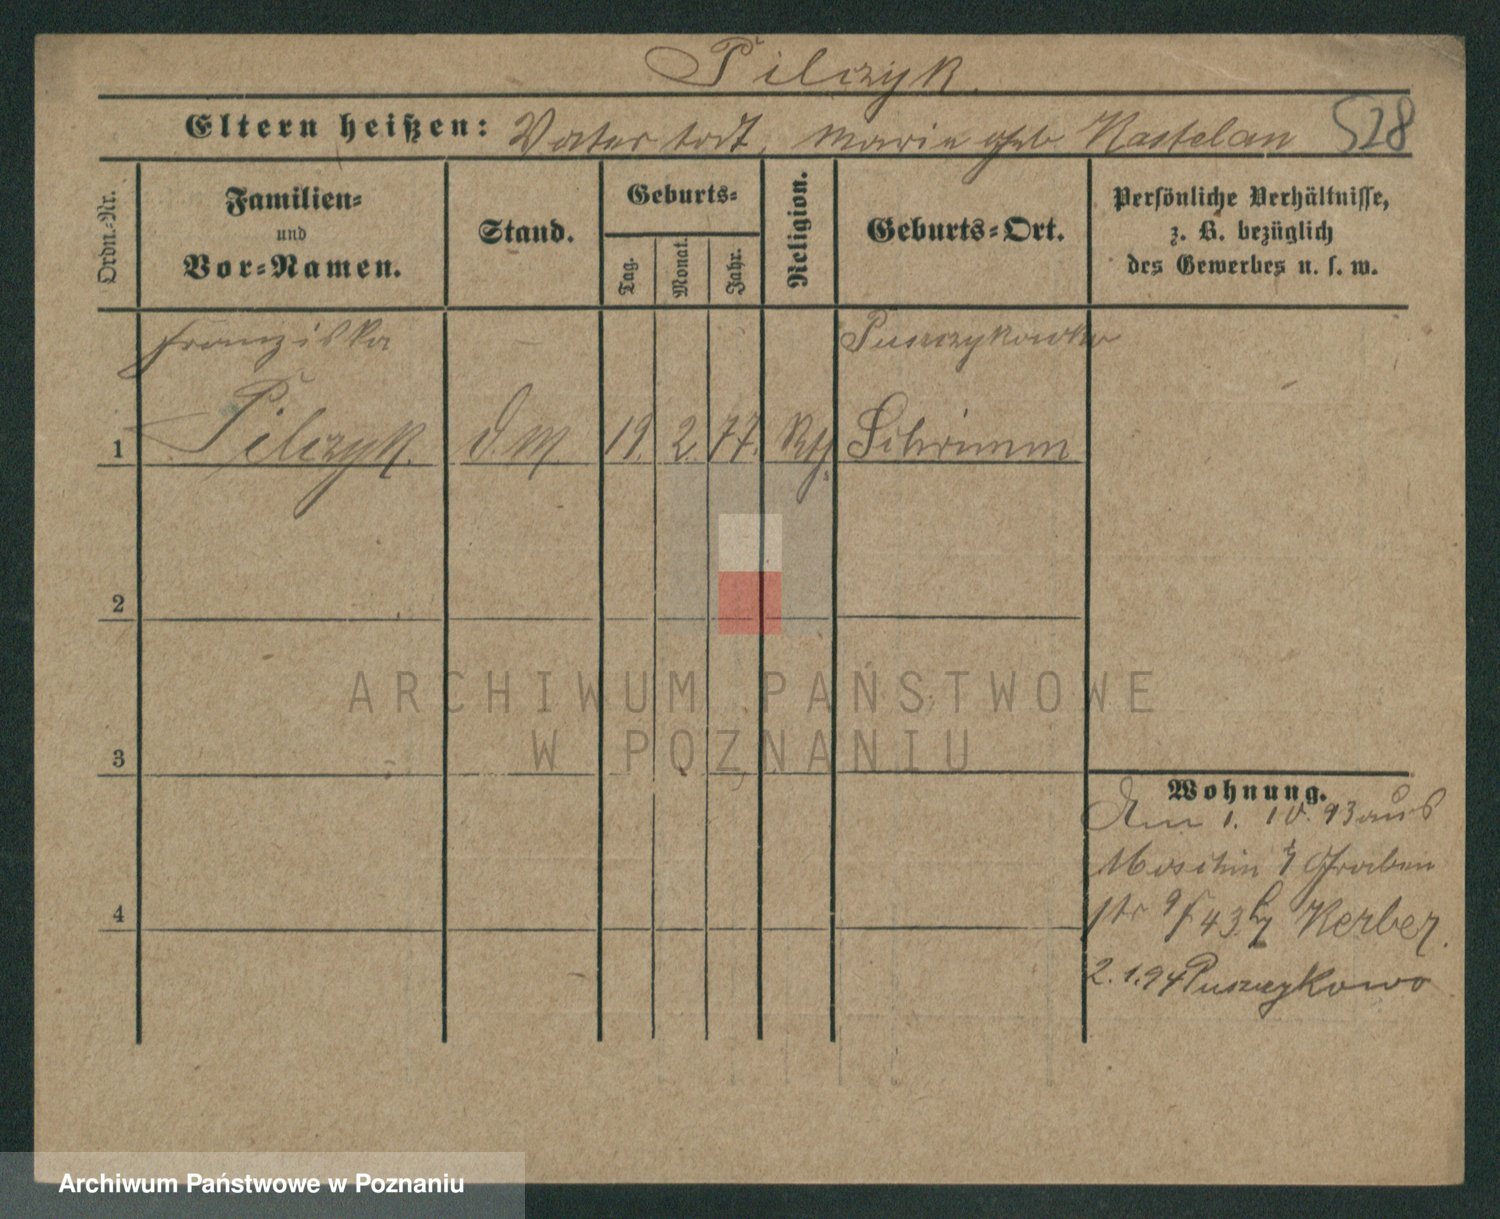 Pilczyk.
Eltern heißen: Vater tot, Maria geb. Kastelan 528
Ordn.-Nr.
Familien-
und
Vor-Namen.
Stand.
Geburts-
Tag.
Monat.
Jahr.
Religion.
Geburts-Ort.
Persönliche Verhältnisse,
z. B. bezüglich
des Gewerbes u. s. w.
Franziska Puszczykowko
1 Pilczyk. d. M. 19. 2. 77. Kth. Schrimm
2
3
4
ARCHIWUM PAŃSTWOWE
W POZNANIU
Wohnung.
Am 1. 10. 93 aus
Moschin Graben
str 9/ 43 Kerber.
2.1.94 Puszczykowo
Archiwum Państwowe w Poznaniu